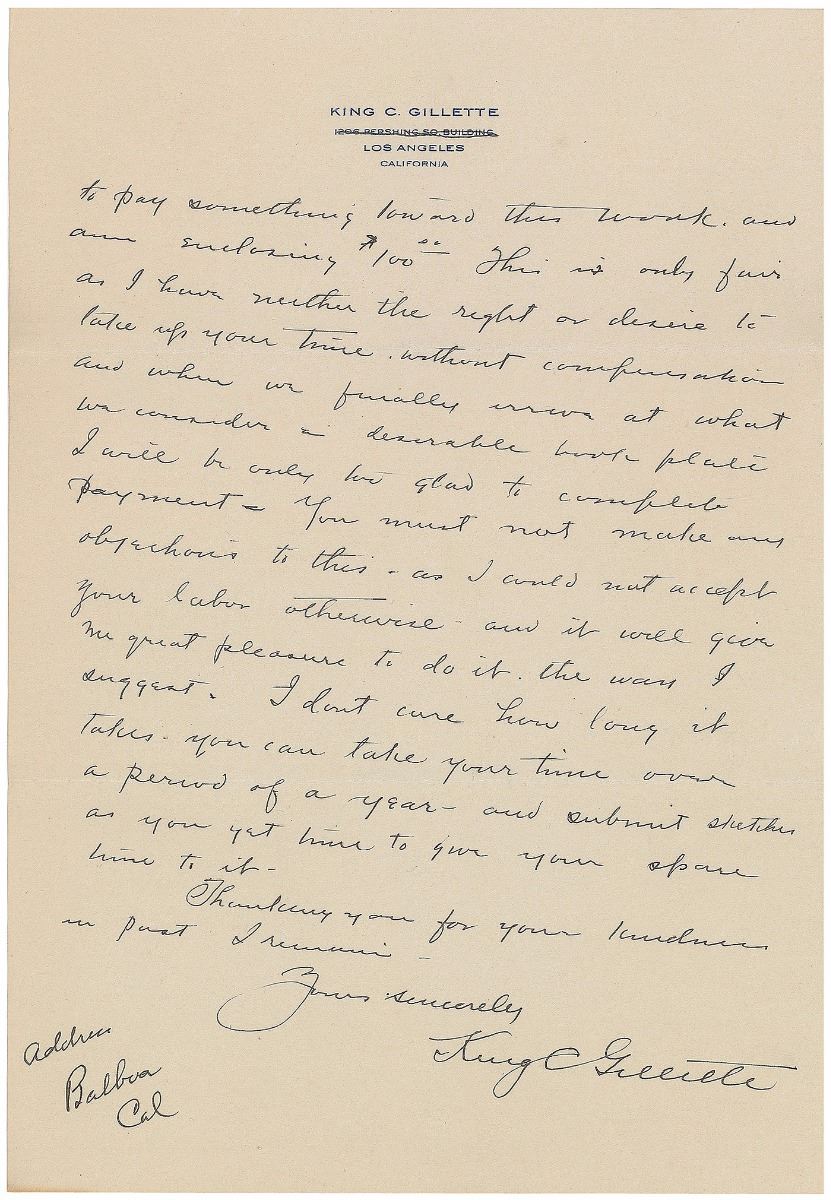 KING C. GILLETTE
1206 PERSHING SQ. BUILDING
LOS ANGELES
CALIFORNIA
to pay something toward this work. and
am enclosing $100 00 This is only fair
as I have neither the right or desire to
take up your time. without compensation
and when we finally arrive at what
we consider a desirable book plate
I will be only too glad to complete
payment - You must not make any
objections to this - as I could not accept
your labor otherwise - and it will give
me great pleasure to do it. the way I
suggest. I dont care how long it
takes. you can take your time over
a period of a year - and submit sketches
as you get time to give your spare
time to it -
Thanking you for your kindness
in past I remain -
Yours sincerely
King C Gillette
Address
Balboa
Cal